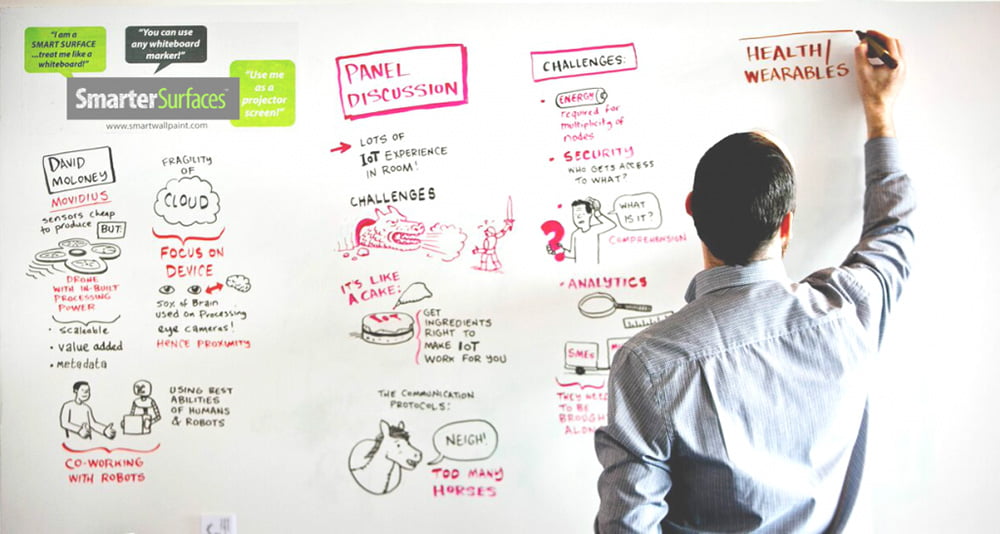 "I am a
SMART SURFACE
...treat me like a
whiteboard!"
"You can use
any whiteboard
marker!"
"Use me
as a
projector
screen!"
SmarterSurfaces™
www.smartwallpaint.com
DAVID
MOLONEY
MOVIDIUS
sensors cheap
to produce BUT:
DRONE
WITH IN-BUILT
PROCESSING
POWER
• scaleable
• value added
• metadata
FRAGILITY
OF
CLOUD
FOCUS ON
DEVICE
50% of Brain
used on Processing
eye cameras!
HENCE PROXIMITY
USING BEST
ABILITIES
OF HUMANS
& ROBOTS
CO-WORKING
WITH ROBOTS
PANEL
DISCUSSION
LOTS OF
IoT EXPERIENCE
IN ROOM!
CHALLENGES
IT'S LIKE
A CAKE:
IoT
GET
INGREDIENTS
RIGHT TO
MAKE IoT
WORK FOR YOU
THE COMMUNICATION
PROTOCOLS:
NEIGH!
TOO MANY
HORSES
CHALLENGES:
• ENERGY
required for
multiplicity of
nodes
• SECURITY
WHO GETS ACCESS
TO WHAT?
?
WHAT
IS IT?
COMPREHENSION
• ANALYTICS
SMEs
THEY NEED
TO BE
BROUGH
ALON
HEALTH/
WEARABLES